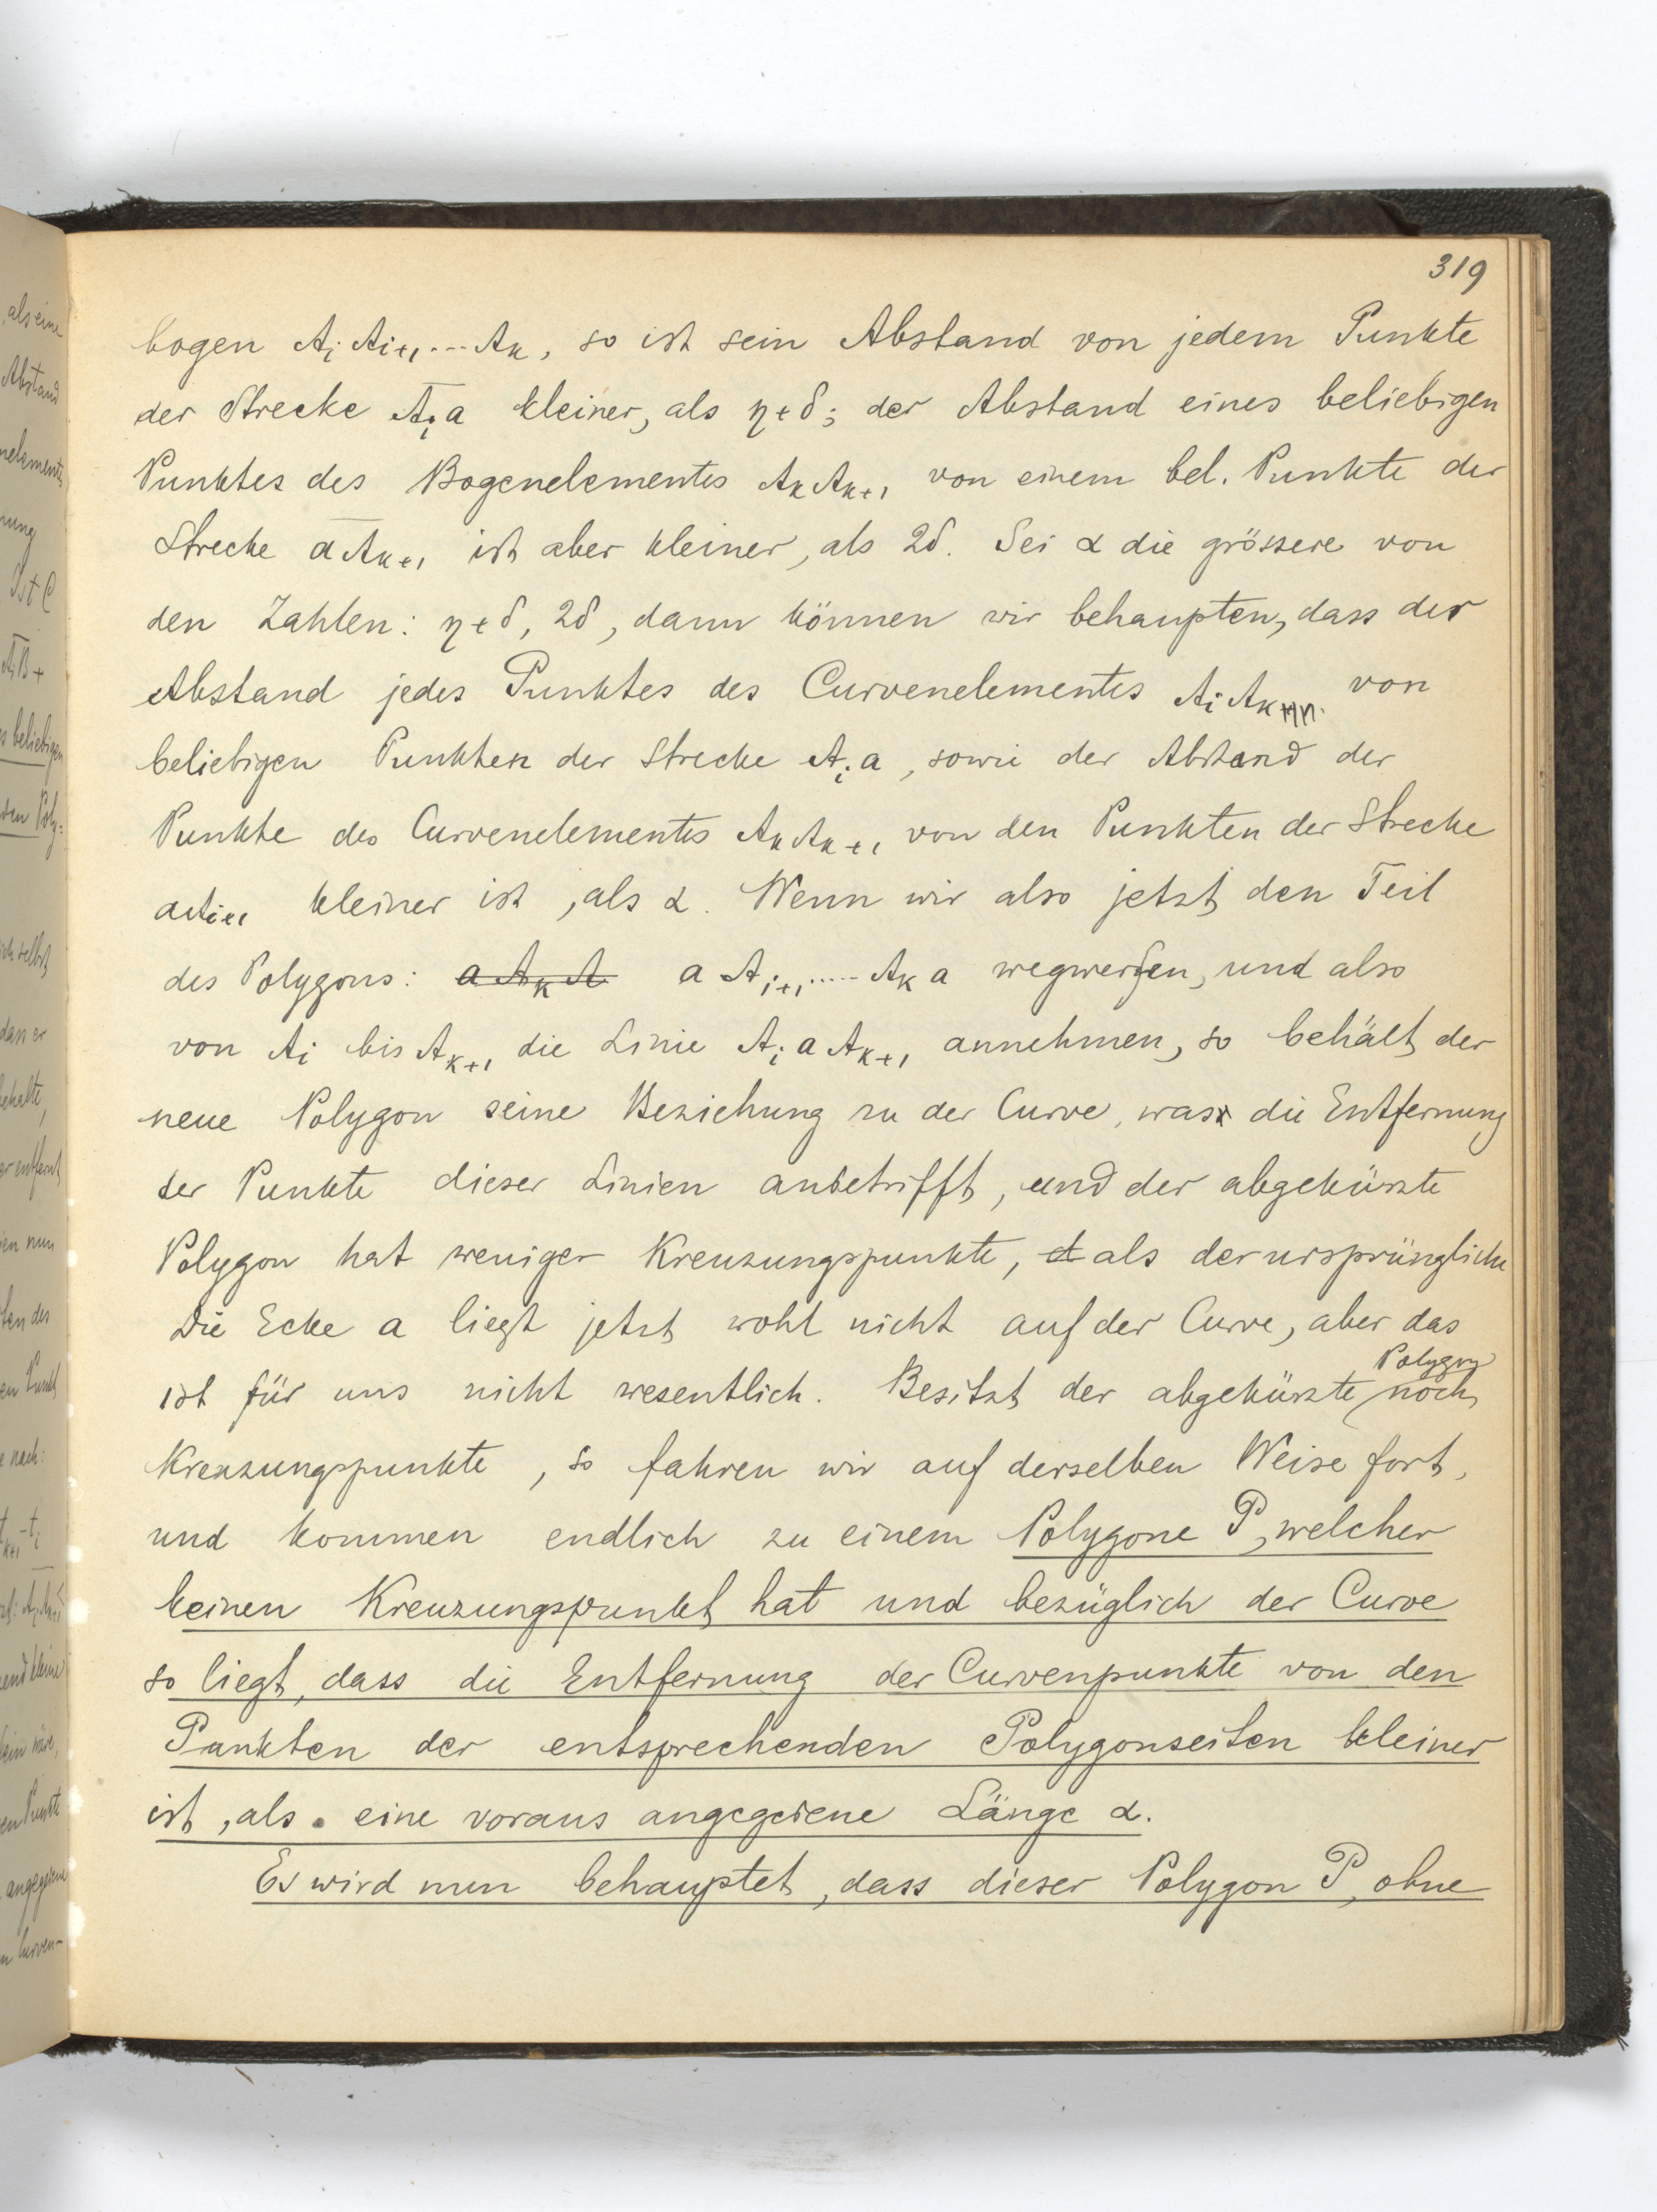 319
bogen AᵢAᵢ₊₁...Aₖ, so ist sein Abstand von jedem Punkte
der Strecke Aᵢa kleiner, als η+δ; der Abstand eines beliebigen
Punktes des Bogenelementes AₖAₖ₊₁ von einem bel. Punkte der
Strecke aAₖ₊₁ ist aber kleiner, als 2δ. Sei α die grössere von
den Zahlen: η+δ, 2δ, dann können wir behaupten, dass der
Abstand jedes Punktes des Curvenelementes AᵢAₖ von
beliebigen Punkten der Strecke Aᵢa, sowie der Abstand der
Punkte des Curvenelementes AₖAₖ₊₁ von den Punkten der Strecke
aAᵢ₊₁ kleiner ist, als α. Wenn wir also jetzt den Teil
des Polygons: a Aₖ A a Aᵢ₊₁.....Aₖ a wegwerfen, und also
von Aᵢ bis Aₖ₊₁ die Linie Aᵢ a Aₖ₊₁ annehmen, so behält der
neue Polygon seine Beziehung zu der Curve, was die Entfernung
der Punkte dieser Linien anbetrifft, und der abgekürzte
Polygon hat weniger Kreuzungspunkte, als der ursprüngliche
Die Ecke a liegt jetzt wohl nicht auf der Curve, aber das
ist für uns nicht wesentlich. Besitzt der abgekürzte Polygon noch
Kreuzungspunkte, so fahren wir auf derselben Weise fort,
und kommen endlich zu einem Polygone P, welcher
keinen Kreuzungspunkt hat und bezüglich der Curve
so liegt, dass die Entfernung der Curvenpunkte von den
Punkten der entsprechenden Polygonseiten kleiner
ist, als eine voraus angegebene Länge α.
Es wird nun behauptet, dass dieser Polygon P, ohne